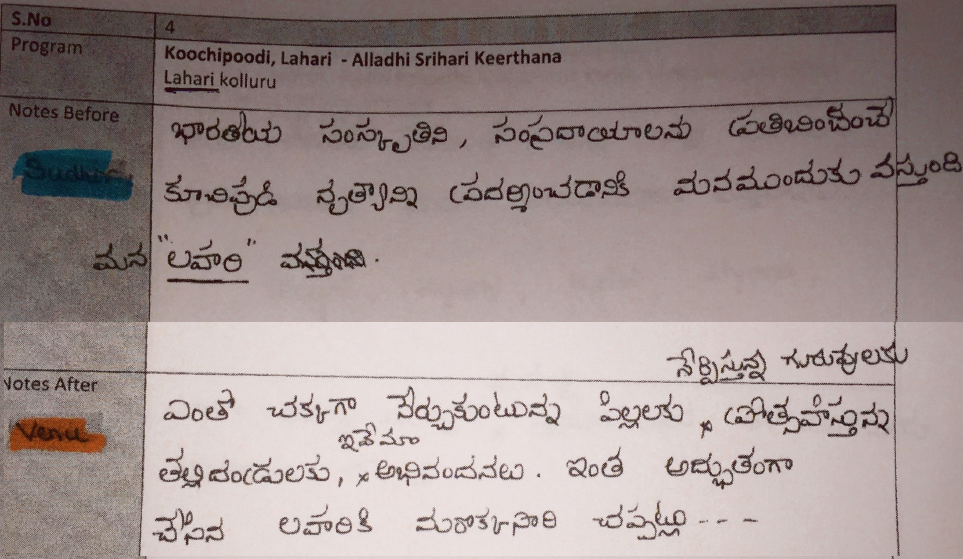 S.No 4
Program Koochipoodi, Lahari - Alladhi Srihari Keerthana
Lahari kolluru
Notes Before
భారతీయ సంస్కృతిని, సంప్రదాయాలను ప్రతిబింబించే
కూచిపుడి నృత్యాన్ని ప్రదర్శించడానికి మనముందుకు వస్తుంది
మన "లహరి"
నేర్పిస్తున్న గురువులకు
Notes After
Venu
ఎంతో చక్కగా నేర్చుకుంటున్న పిల్లలకు, ప్రోత్సహిస్తున్న
ఇదేమా
తల్లిదండ్రులకు, అభినందనలు. ఇంత అద్భుతంగా
చేసిన లహరికి మరొక్కసారి చప్పట్లు - - -